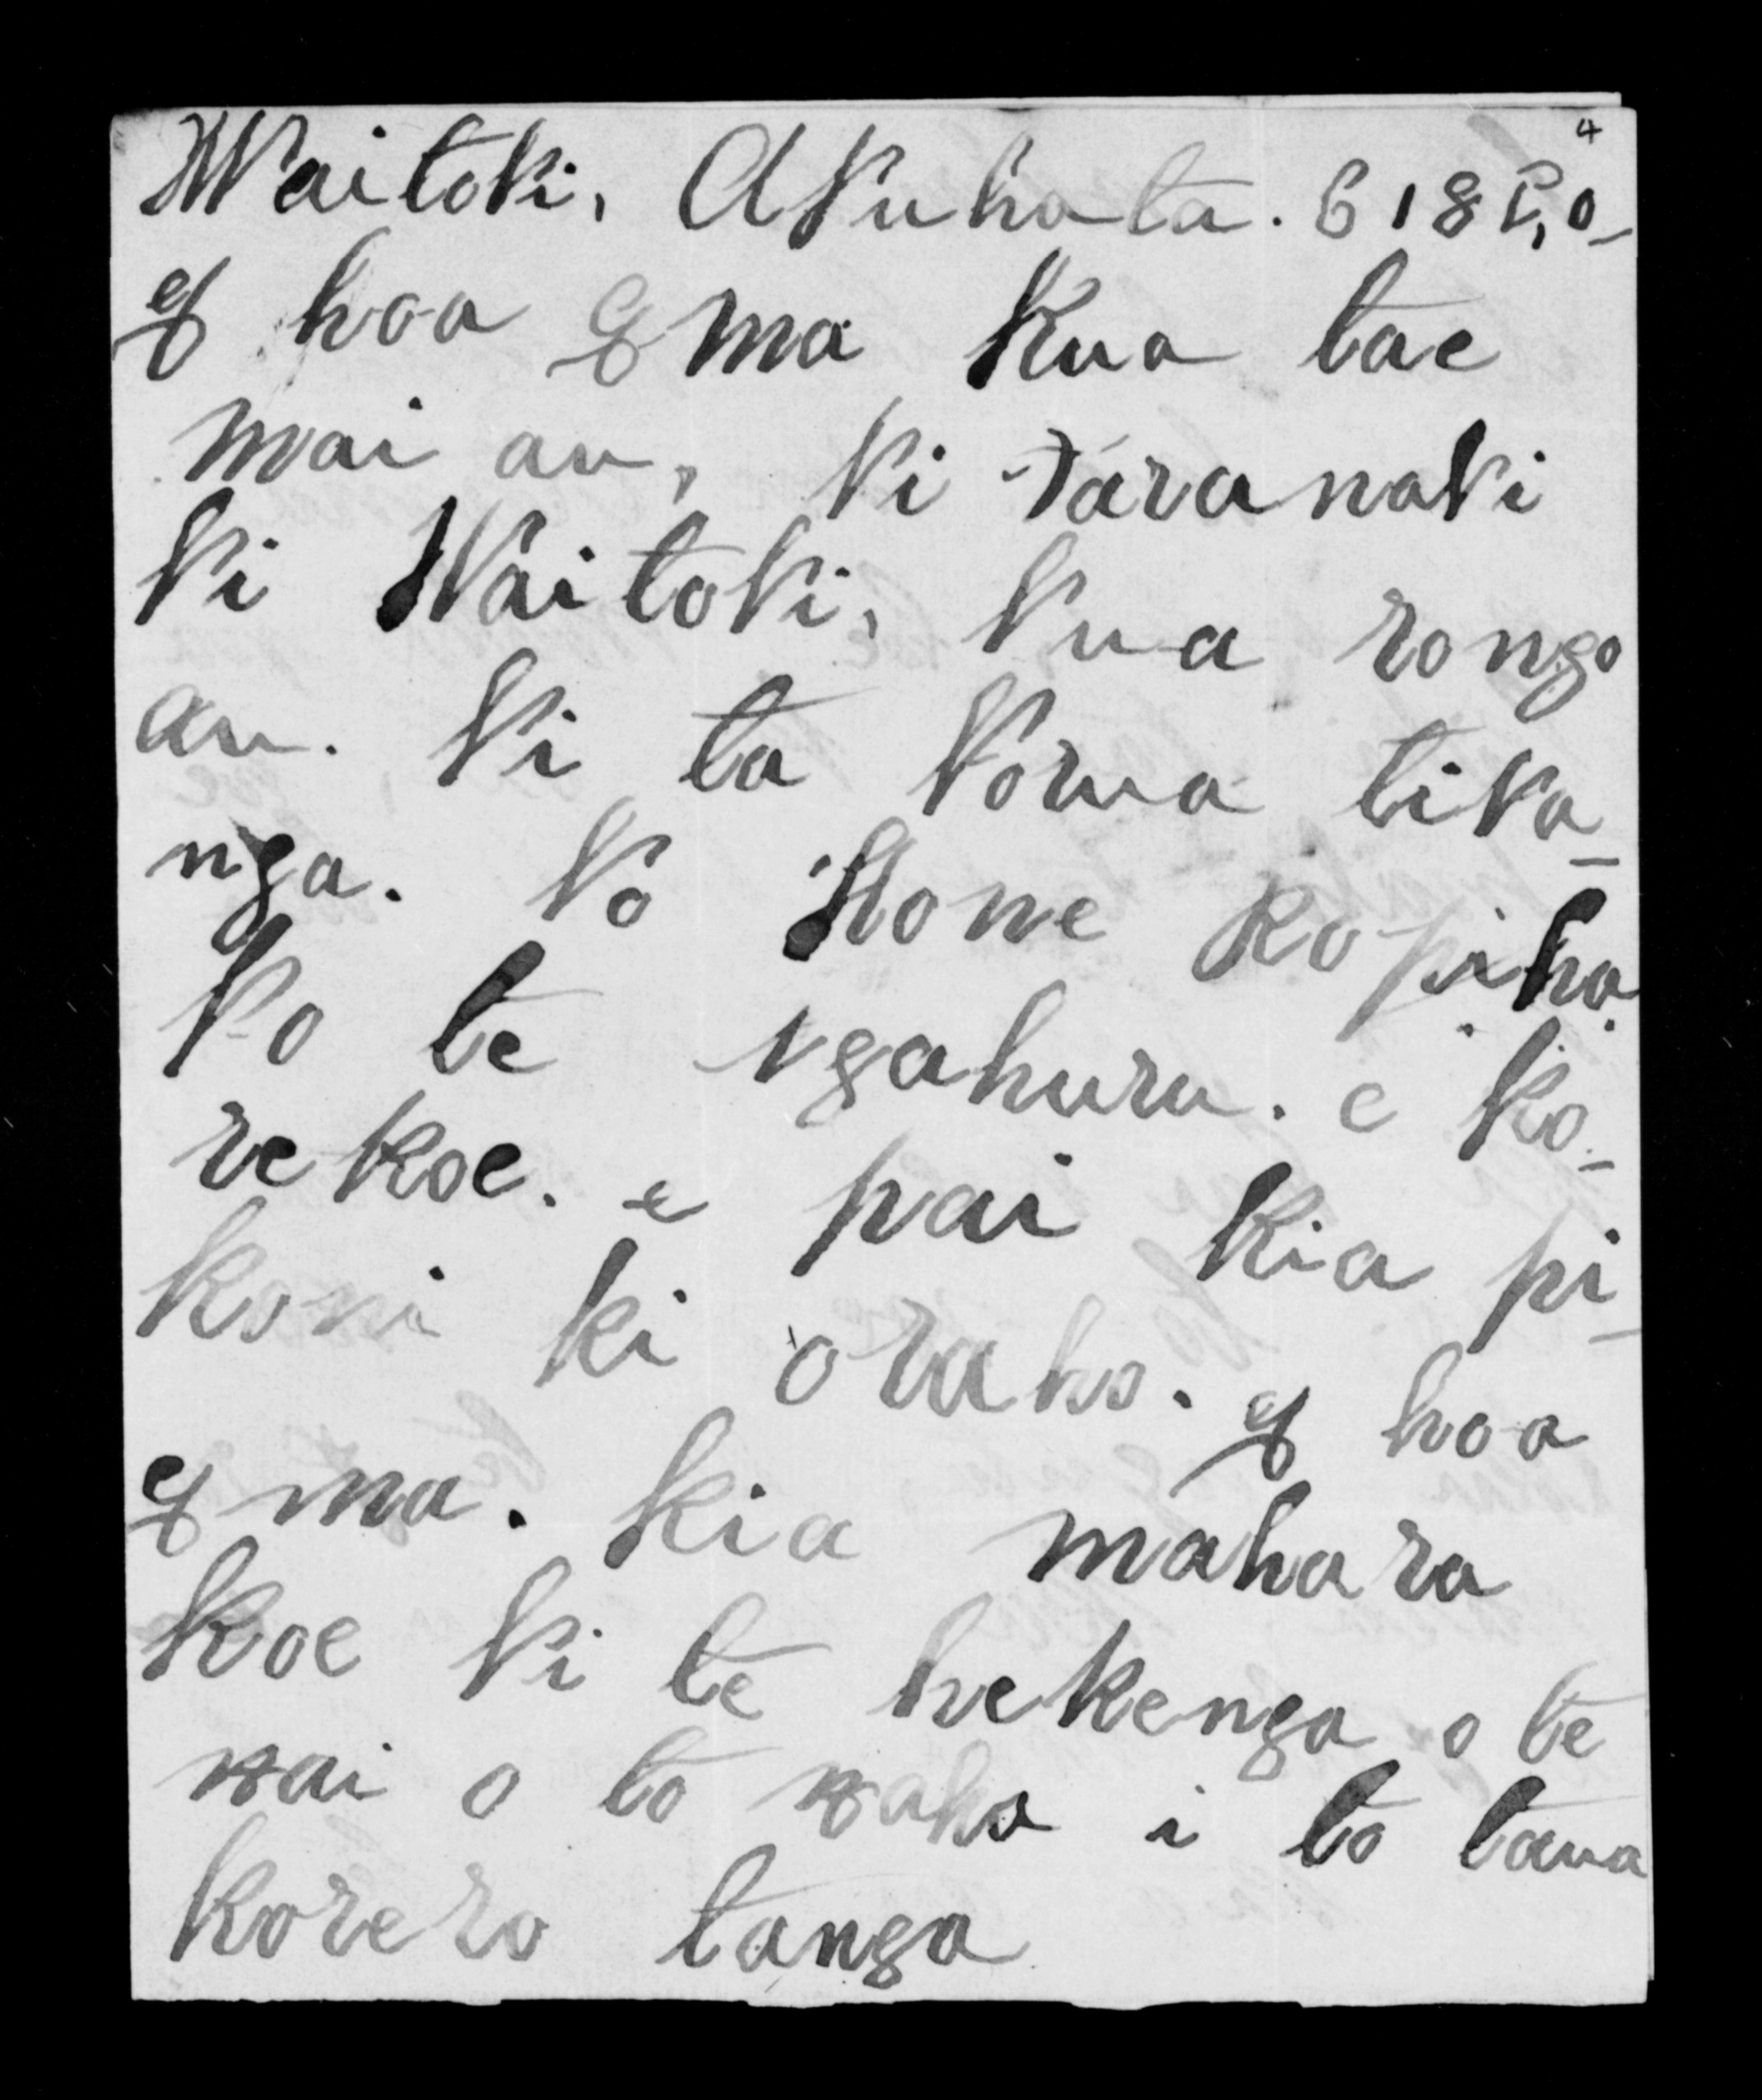 4
Waitoki, Akuhata. 6 1850_
E hoa E ma Kua tae
mai au, ki Taranaki
ki Waitoki, kua rongo
au. ki ta korua tika_
nga. ko Hone Ropiha.
ko te ngahuru. e Ko_
re koe. e pai kia pi_
koni ki oraho. E hoa
E ma. kia mahara
koe ki te hekenga o te
wai o to waho i to taua
korero tanga